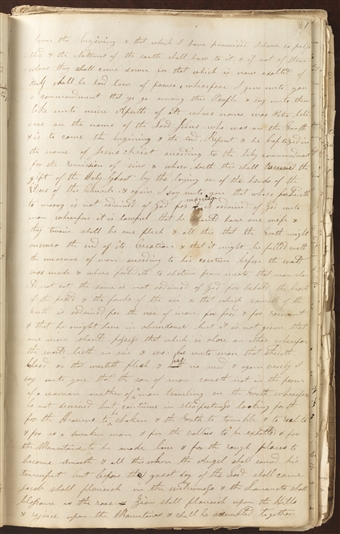 from the begining & that which I have promised I have so fulfil
led & the Nations of the earth shall bow to it & if not of them
selves they shall come down for that which is now exalted of
itself shall be laid low of power wherefore I give unto you
a commandment that ye go among this People & say unto them
like unto mine Apostle of old whose name was Peter belie
ve on the name of the Lord Jesus who was on the Earth
& is to come the begining & the end Repent & be baptised in
the name of Jesus Christ according to the holy commandment
for the remission of sins & whoso doeth this shall receive the
gift of the Holy Ghost by the laying on of the hands of the
Elders of this Church & again I say unto you that whoso forbideth
to marry is not ordained of God for marriage is ordained of God unto
man wherefore it is lawful that he should have one wife &
they twain shall be one flesh & all this that the Earth might
answer the end of its Creation & that it might be filled with
the measure of man according to his creation before the world
was made & whoso forbideth to abstain from meats that man should
not eat the same is not ordained of God for behold the beasts
of the field & the fowls of the air & that which cometh of the
Earth is ordained for the use of man for food & for raiment
& that he might have in abundance but it is not given that
one man should possess that which is above an other wherefore
the world lieth in sin & wo be unto man that sheddeth
blood or that wasteth flesh & hath no need & again verily I
say unto you that the son of man cometh not in the form
of a woman neither of a man traveling on the Earth wherefore
be not deceived but continue in steadfastness looking forth
for the Heavens to be shaken & the Earth to tremble & to reel to
& fro as a drunken man & for the vallies to be exalted & for
the Mountains to be made low & for the rough places to
become smooth & all this when the Angel shall sound his
trumpet but before the great day of the Lord shall come
Jacob shall flourish in the wilderness & the Lamanites shall
blossom as the rose Zion shall flourish upon the Hills
& rejoice upon the Mountains & shall be assembled together